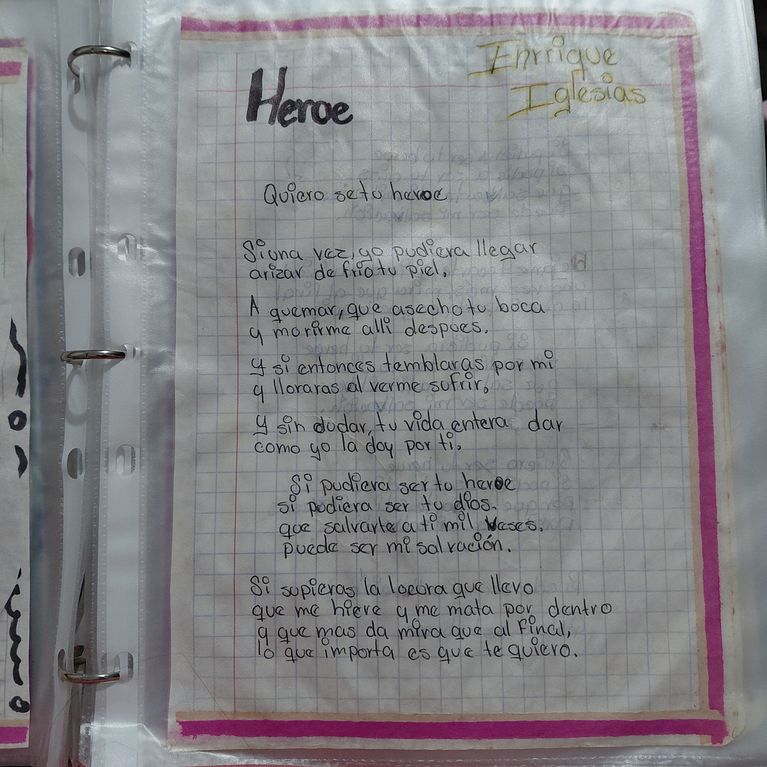 Heroe
Enrrique
Iglesias
Quiero se tu heroe
Si una vez, yo pudiera llegar
arizar de frio tu piel,
A quemar, que asecho tu boca
y morirme alli despues.
Y si entonces temblaras por mi
y lloraras al verme sufrir,
Y sin dudar, tu vida entera dar
como yo la doy por ti.
Si pudiera ser tu heroe
si pudiera ser tu dios.
que salvarte a ti mil veses.
puede ser mi salvación.
Si supieras la locura que llevo
que me hiere y me mata por dentro
y que mas da mira que al final,
lo que importa es que te quiero.